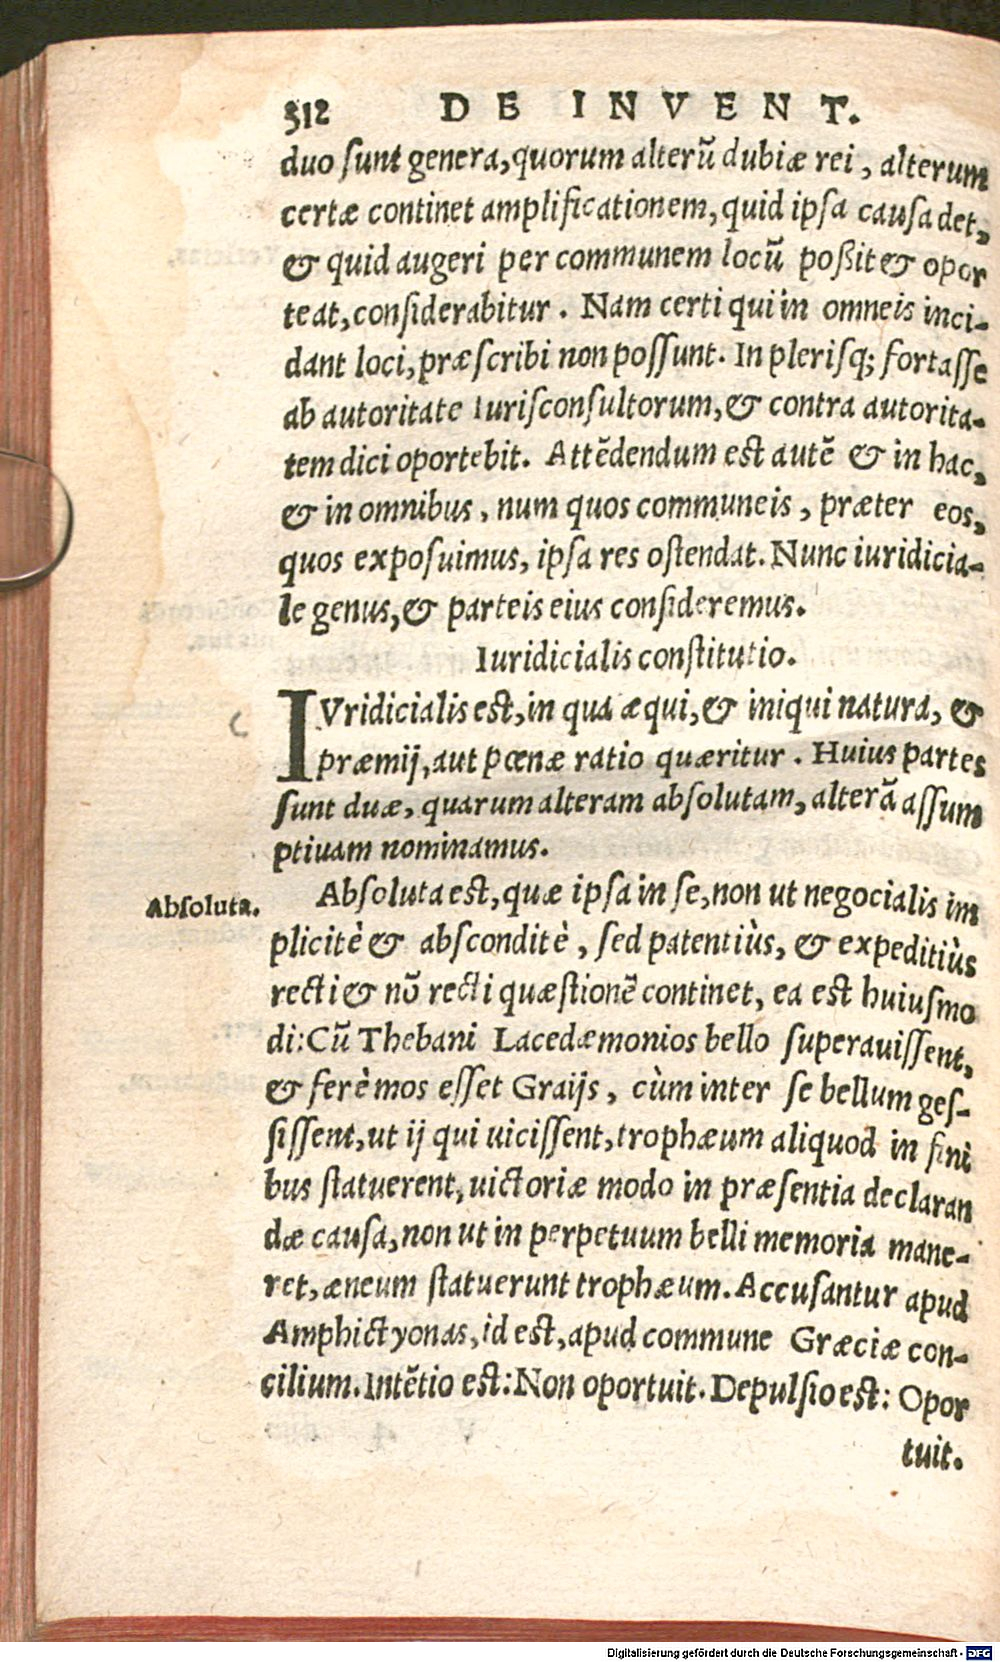 312 DE INVENT.
duo sunt genera, quorum alterũ dubiæ rei, alterum
certæ continet amplificationem, quid ipsa causa det,
& quid augeri per communem locũ poßit & opor
teat, considerabitur. Nam certi qui in omneis inci-
dant loci, præscribi non possunt. In plerisq; fortasse
ab autoritate Iurisconsultorum, & contra autorita-
tem dici oportebit. Attẽdendum est autẽ & in hac,
& in omnibus, num quos communeis, præter eos,
quos exposuimus, ipsa res ostendat. Nunc iuridicia-
le genus, & parteis eius consideremus.
Iuridicialis constitutio.
IVridicialis est, in qua æqui, & iniqui natura, &
præmij, aut pœnæ ratio quæritur. Huius partes
sunt duæ, quarum alteram absolutam, alterã assum
ptiuam nominamus.
Absoluta.
Absoluta est, quæ ipsa in se, non ut negocialis im
plicitè & absconditè, sed patentiùs, & expeditiùs
recti & nõ recti quæstionẽ continet, ea est huiusmo
di: Cũ Thebani Lacedæmonios bello superauissent,
& ferè mos esset Graijs, cùm inter se bellum ges-
sissent, ut ij qui uicissent, trophæum aliquod in fini
bus statuerent, uictoriæ modo in præsentia declaran
dæ causa, non ut in perpetuum belli memoria mane-
ret, æneum statuerunt trophæum. Accusantur apud
Amphictyonas, id est, apud commune Græciæ con-
cilium. Intẽtio est: Non oportuit. Depulsio est: Opor
tuit.
Digitalisierung gefördert durch die Deutsche Forschungsgemeinschaft - DFG